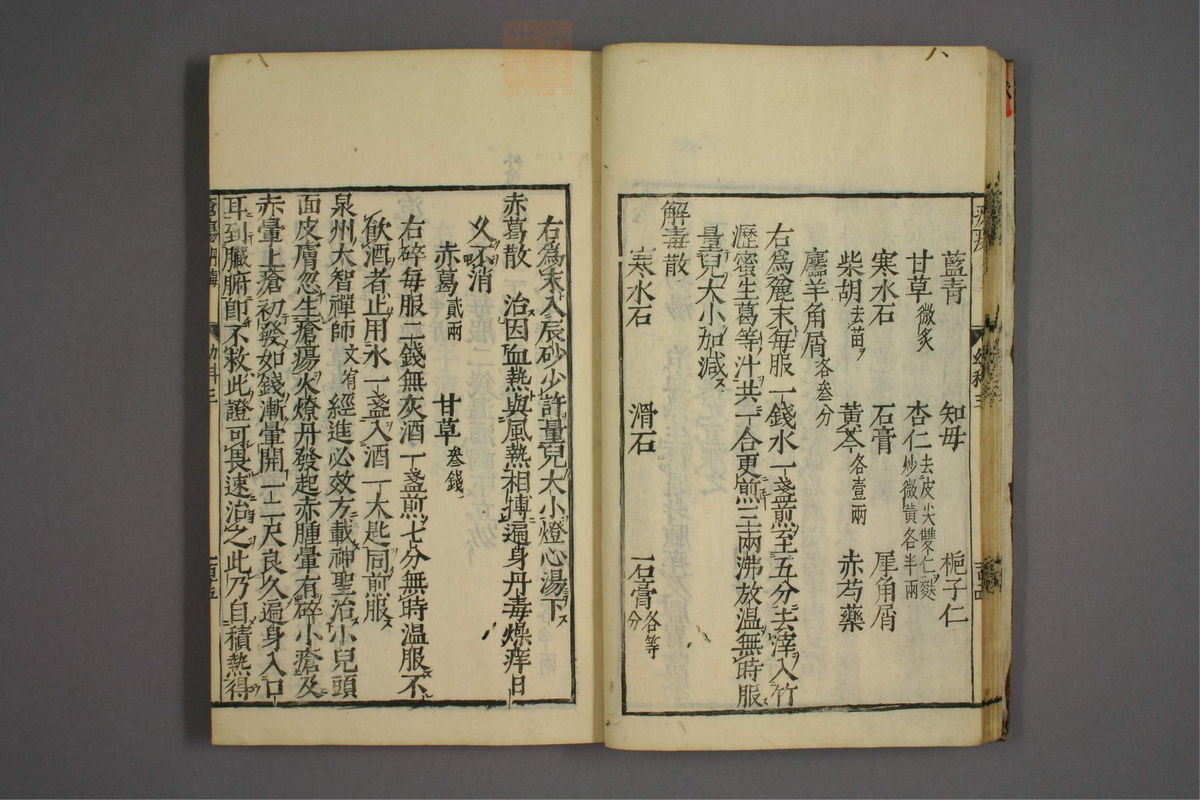 藍青 知母 梔子仁
甘草微炙 杏仁去皮尖雙仁麩炒微黄各半兩
寒水石 石膏 犀角屑
柴胡去苗 黄芩各壹兩 赤芍藥
麢羊角屑各叁分
右爲麄末每服一錢水一盞煎至五分去滓入竹
瀝蜜生葛等汁共一合更煎三兩沸放温無時服
量兒大小加減
解毒散
寒水石 滑石 石膏各等分
右爲末入辰砂少許量兒大小燈心湯下
赤葛散 治因血熱與風熱相搏遍身丹毒燥痒日
久不消
赤葛貳兩 甘草叁錢
右碎每服二錢無灰酒一盞煎七分無時温服不
飲酒者止用水一盞入酒一大匙同煎服
泉州大智禪師文宥經進必效方載神聖治小兒頭
面皮膚忽生瘡瘍火燎丹發起赤腫暈有碎小瘡及
赤暈上瘡初發如錢漸暈開一二尺良久遍身入口
耳到臟腑即不救此證可畏速治之此乃自積熱得
幼科三